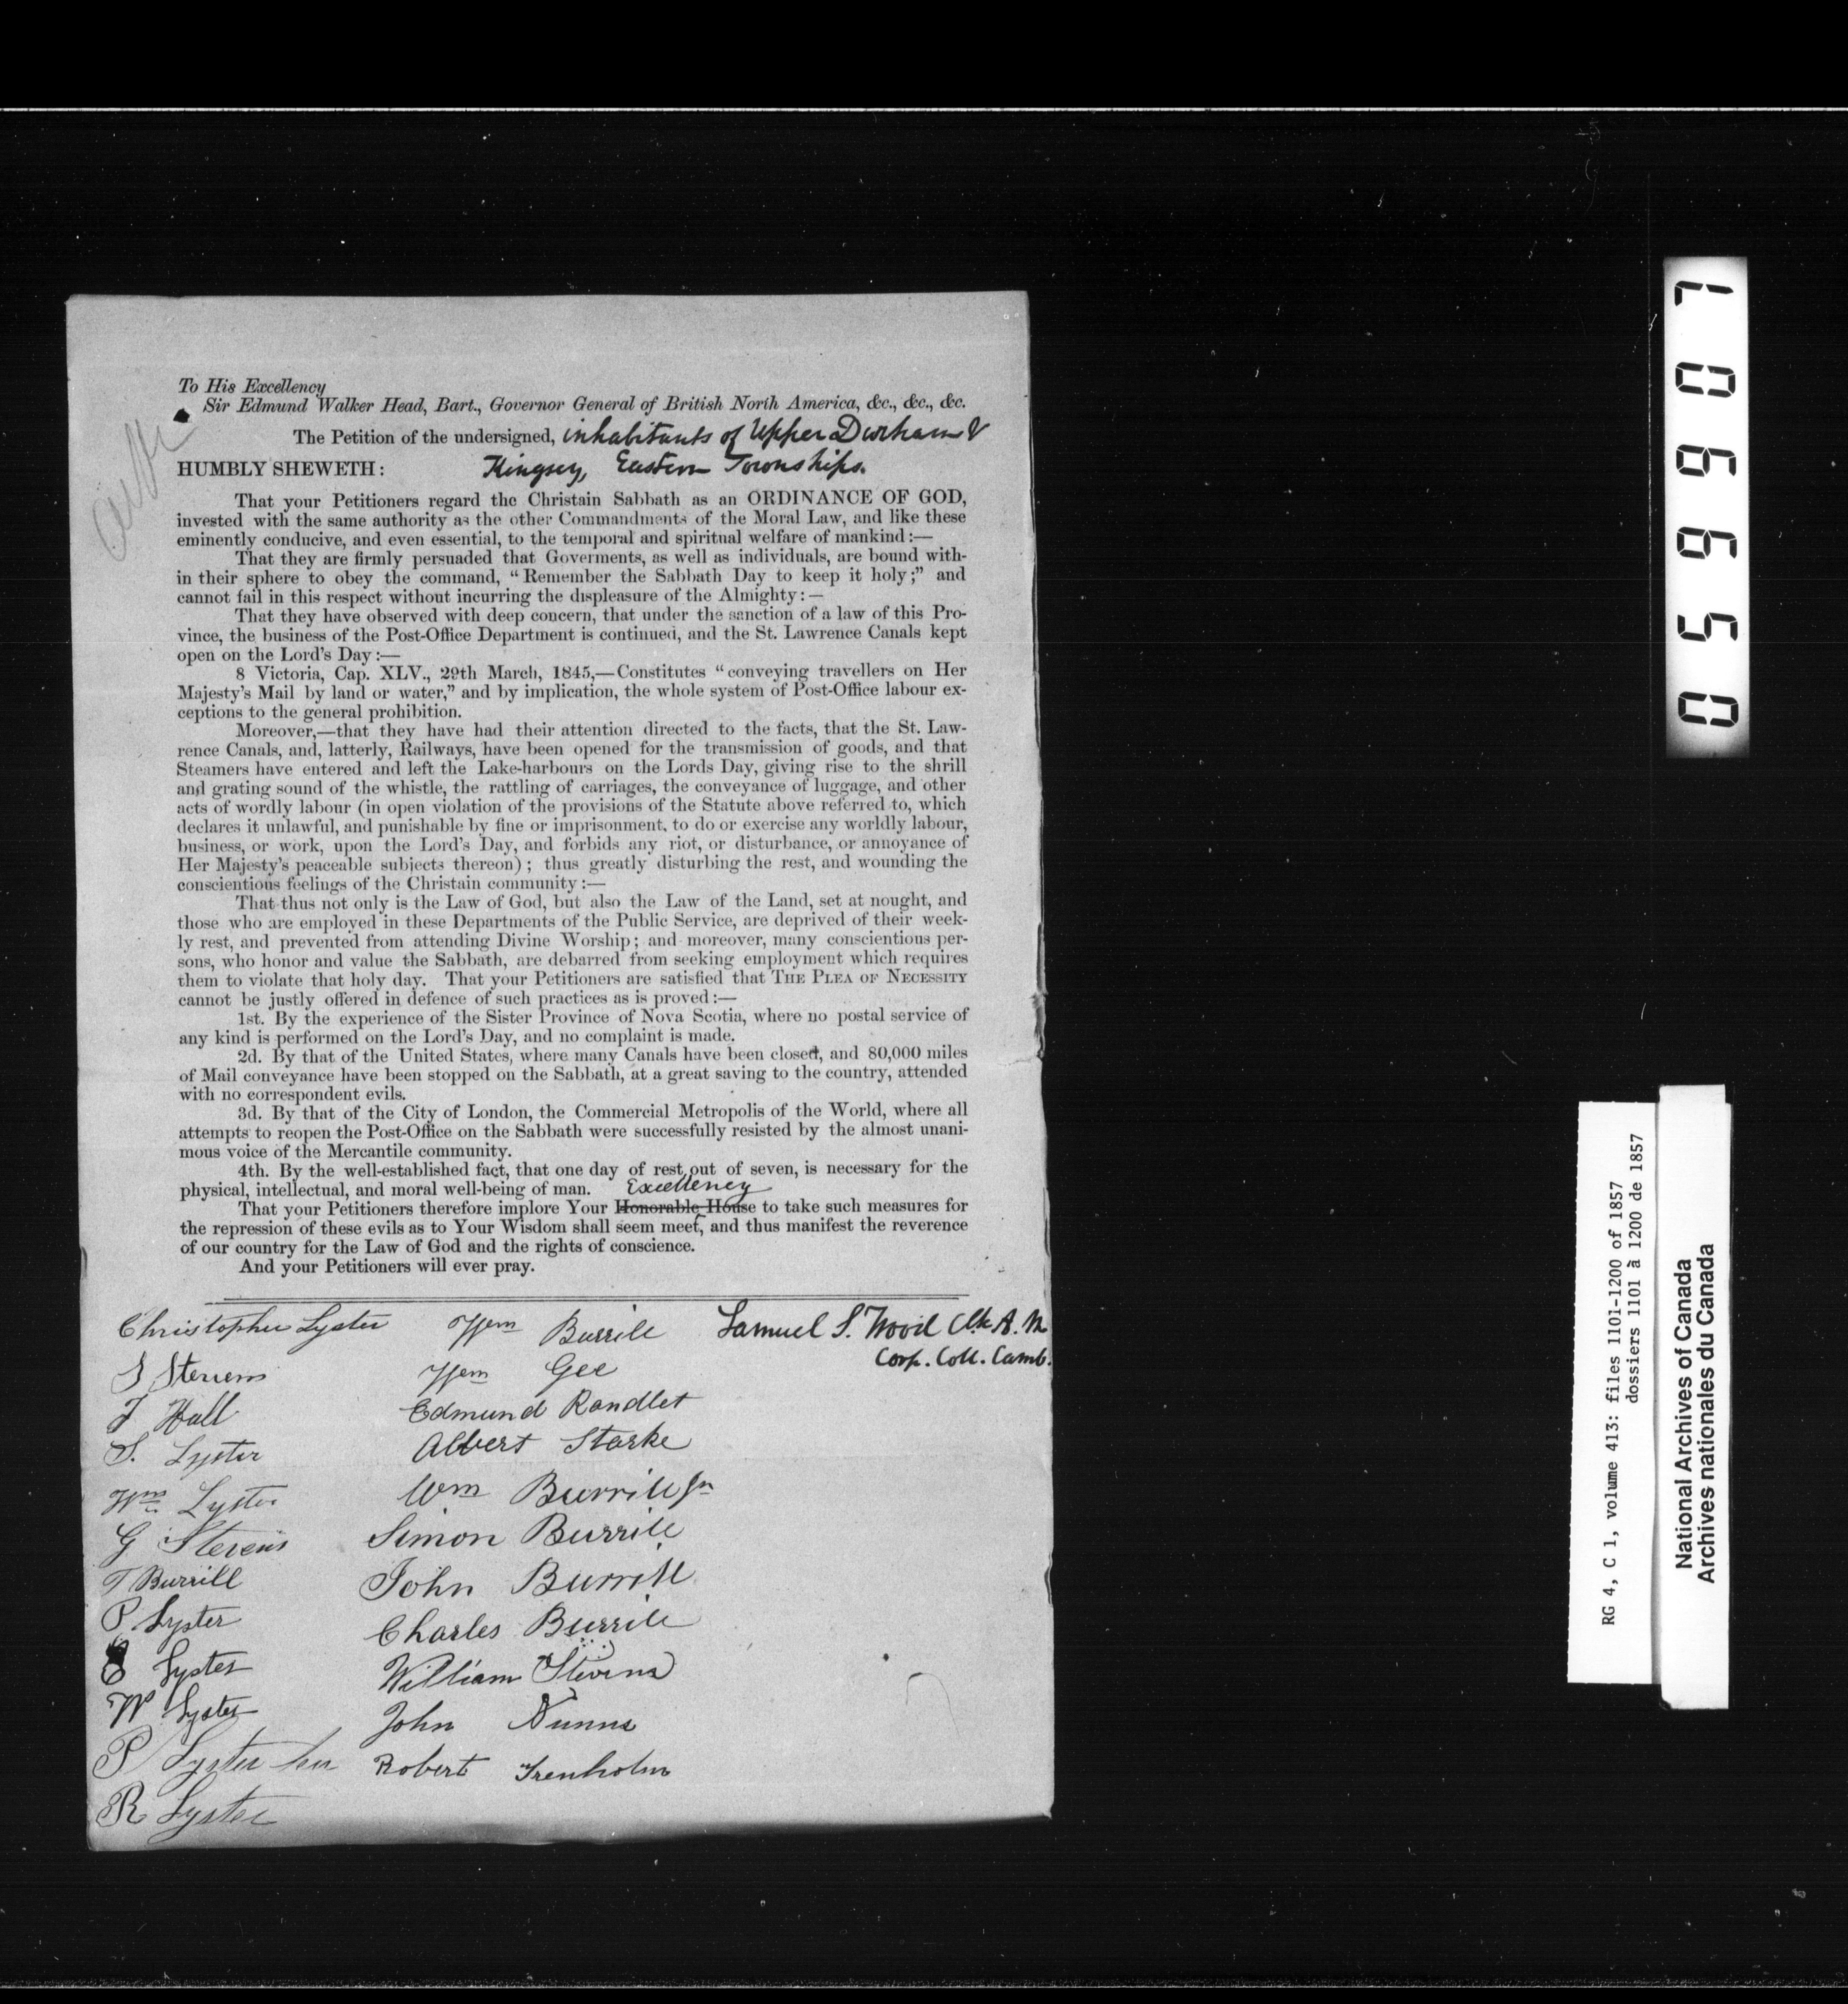 To His Excellency
Sir Edmund Walker Head, Bart., Governor General of British North America, &c., &c., &c.
The Petition of the undersigned, inhabitants of Upper Durham &
HUMBLY SHEWETH: Kingsey, Eastern Townships.
That your Petitioners regard the Christain Sabbath as an ORDINANCE OF GOD,
invested with the same authority as the other Commandments of the Moral Law, and like these
eminently conducive, and even essential, to the temporal and spiritual welfare of mankind:—
That they are firmly persuaded that Goverments, as well as individuals, are bound with-
in their sphere to obey the command, "Remember the Sabbath Day to keep it holy;" and
cannot fail in this respect without incurring the displeasure of the Almighty:—
That they have observed with deep concern, that under the sanction of a law of this Pro-
vince, the business of the Post-Office Department is continued, and the St. Lawrence Canals kept
open on the Lord's Day:—
8 Victoria, Cap. XLV., 29th March, 1845,—Constitutes "conveying travellers on Her
Majesty's Mail by land or water," and by implication, the whole system of Post-Office labour ex-
ceptions to the general prohibition.
Moreover,—that they have had their attention directed to the facts, that the St. Law-
rence Canals, and, latterly, Railways, have been opened for the transmission of goods, and that
Steamers have entered and left the Lake-harbours on the Lords Day, giving rise to the shrill
and grating sound of the whistle, the rattling of carriages, the conveyance of luggage, and other
acts of wordly labour (in open violation of the provisions of the Statute above referred to, which
declares it unlawful, and punishable by fine or imprisonment, to do or exercise any worldly labour,
business, or work, upon the Lord's Day, and forbids any riot, or disturbance, or annoyance of
Her Majesty's peaceable subjects thereon); thus greatly disturbing the rest, and wounding the
conscientious feelings of the Christain community:—
That thus not only is the Law of God, but also the Law of the Land, set at nought, and
those who are employed in these Departments of the Public Service, are deprived of their week-
ly rest, and prevented from attending Divine Worship; and moreover, many conscientious per-
sons, who honor and value the Sabbath, are debarred from seeking employment which requires
them to violate that holy day. That your Petitioners are satisfied that THE PLEA OF NECESSITY
cannot be justly offered in defence of such practices as is proved:—
1st. By the experience of the Sister Province of Nova Scotia, where no postal service of
any kind is performed on the Lord's Day, and no complaint is made.
2d. By that of the United States, where many Canals have been closed, and 80,000 miles
of Mail conveyance have been stopped on the Sabbath, at a great saving to the country, attended
with no correspondent evils.
3d. By that of the City of London, the Commercial Metropolis of the World, where all
attempts to reopen the Post-Office on the Sabbath were successfully resisted by the almost unani-
mous voice of the Mercantile community.
4th. By the well-established fact, that one day of rest out of seven, is necessary for the
physical, intellectual, and moral well-being of man. Excellency
That your Petitioners therefore implore Your Honorable House to take such measures for
the repression of these evils as to Your Wisdom shall seem meet, and thus manifest the reverence
of our country for the Law of God and the rights of conscience.
And your Petitioners will ever pray.
Christopher Lyster Wm Burrill Samuel S. Wood Clk A. M
Corp. Coll. Camb.
S Stevens Wm Gee
T Hall Edmund Randlet
S. Lyster Albert Starke
Wm Lyster Wm Burrill Jn
G Stevens Simon Burrill
T Burrill John Burrill
P Lyster Charles Burrill
Lyster William Stevens
W Lyster John Nunns
P Lyster Robert Trenholm
R Lyster
05997
RG 4, C 1, volume 413: files 1101-1200 of 1857
dossiers 1101 à 1200 de 1857
National Archives of Canada
Archives nationales du Canada